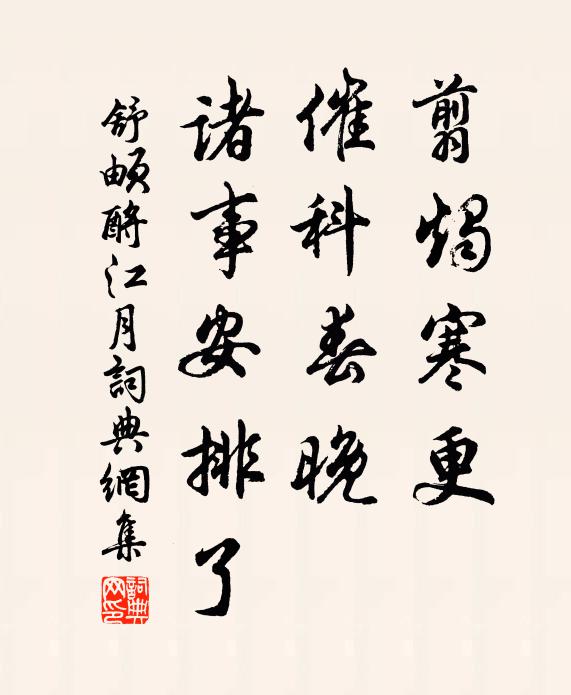 翦燭寒更
催科春晚
諸事安排了
舒頔酹江月詞典網集
詞典網印